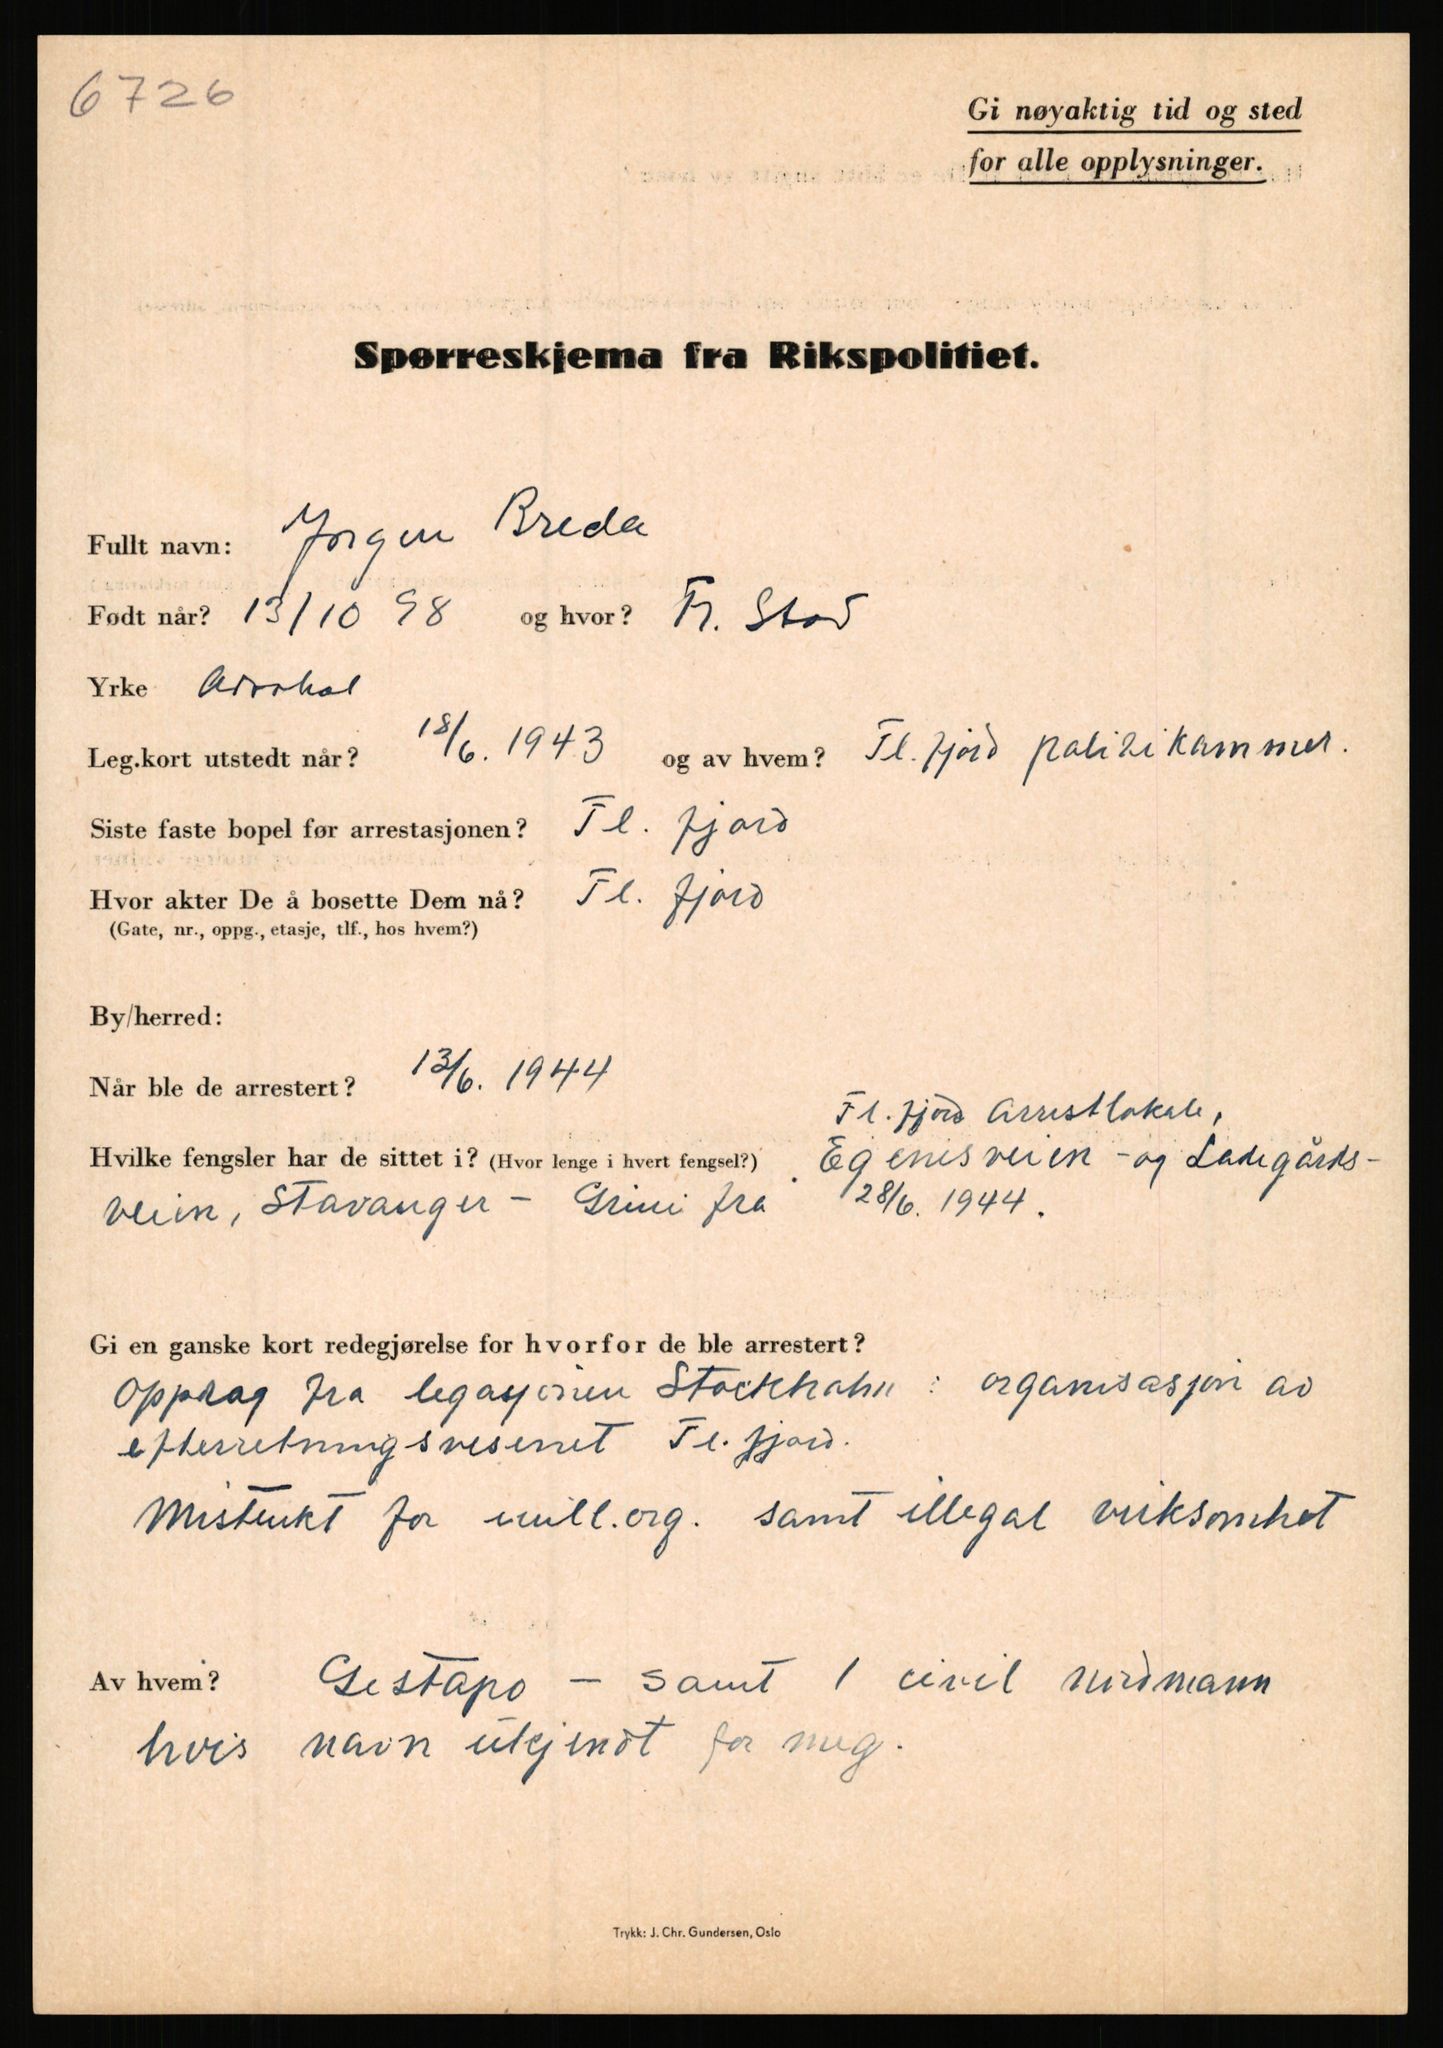 6726
Gi nøyaktig tid og sted
for alle opplysninger.
Spørreskjema fra Rikspolitiet.
Fullt navn: Jørgen Breda
Født når? 13/10 98 og hvor? Fr. Stad
Yrke Advokat
Leg.kort utstedt når? 18/6. 1943 og av hvem? Fl. fjord politikammer.
Siste faste bopel før arrestasjonen? Fl. fjord
Hvor akter De å bosette Dem nå? Fl. fjord
(Gate, nr., oppg., etasje, tlf., hos hvem?)
By/herred:
Når ble de arrestert? 13/6. 1944
Fl. fjord Arrestlokale,
Hvilke fengsler har de sittet i? (Hvor lenge i hvert fengsel?). Egenesveien - og Ladegårds-
veien, Stavanger - Grini fra 28/6. 1944.
Gi en ganske kort redegjørelse for hvorfor de ble arrestert?
Oppdrag fra legasjonen Stockholm: organisasjon av
efterretningsvesenet Fl. fjord.
Mistenkt for mill. org. samt illegal virksomhet
Av hvem? Gestapo - samt 1 civil nordmann
hvis navn ukjendt for meg.
Trykk: J. Chr. Gundersen, Oslo